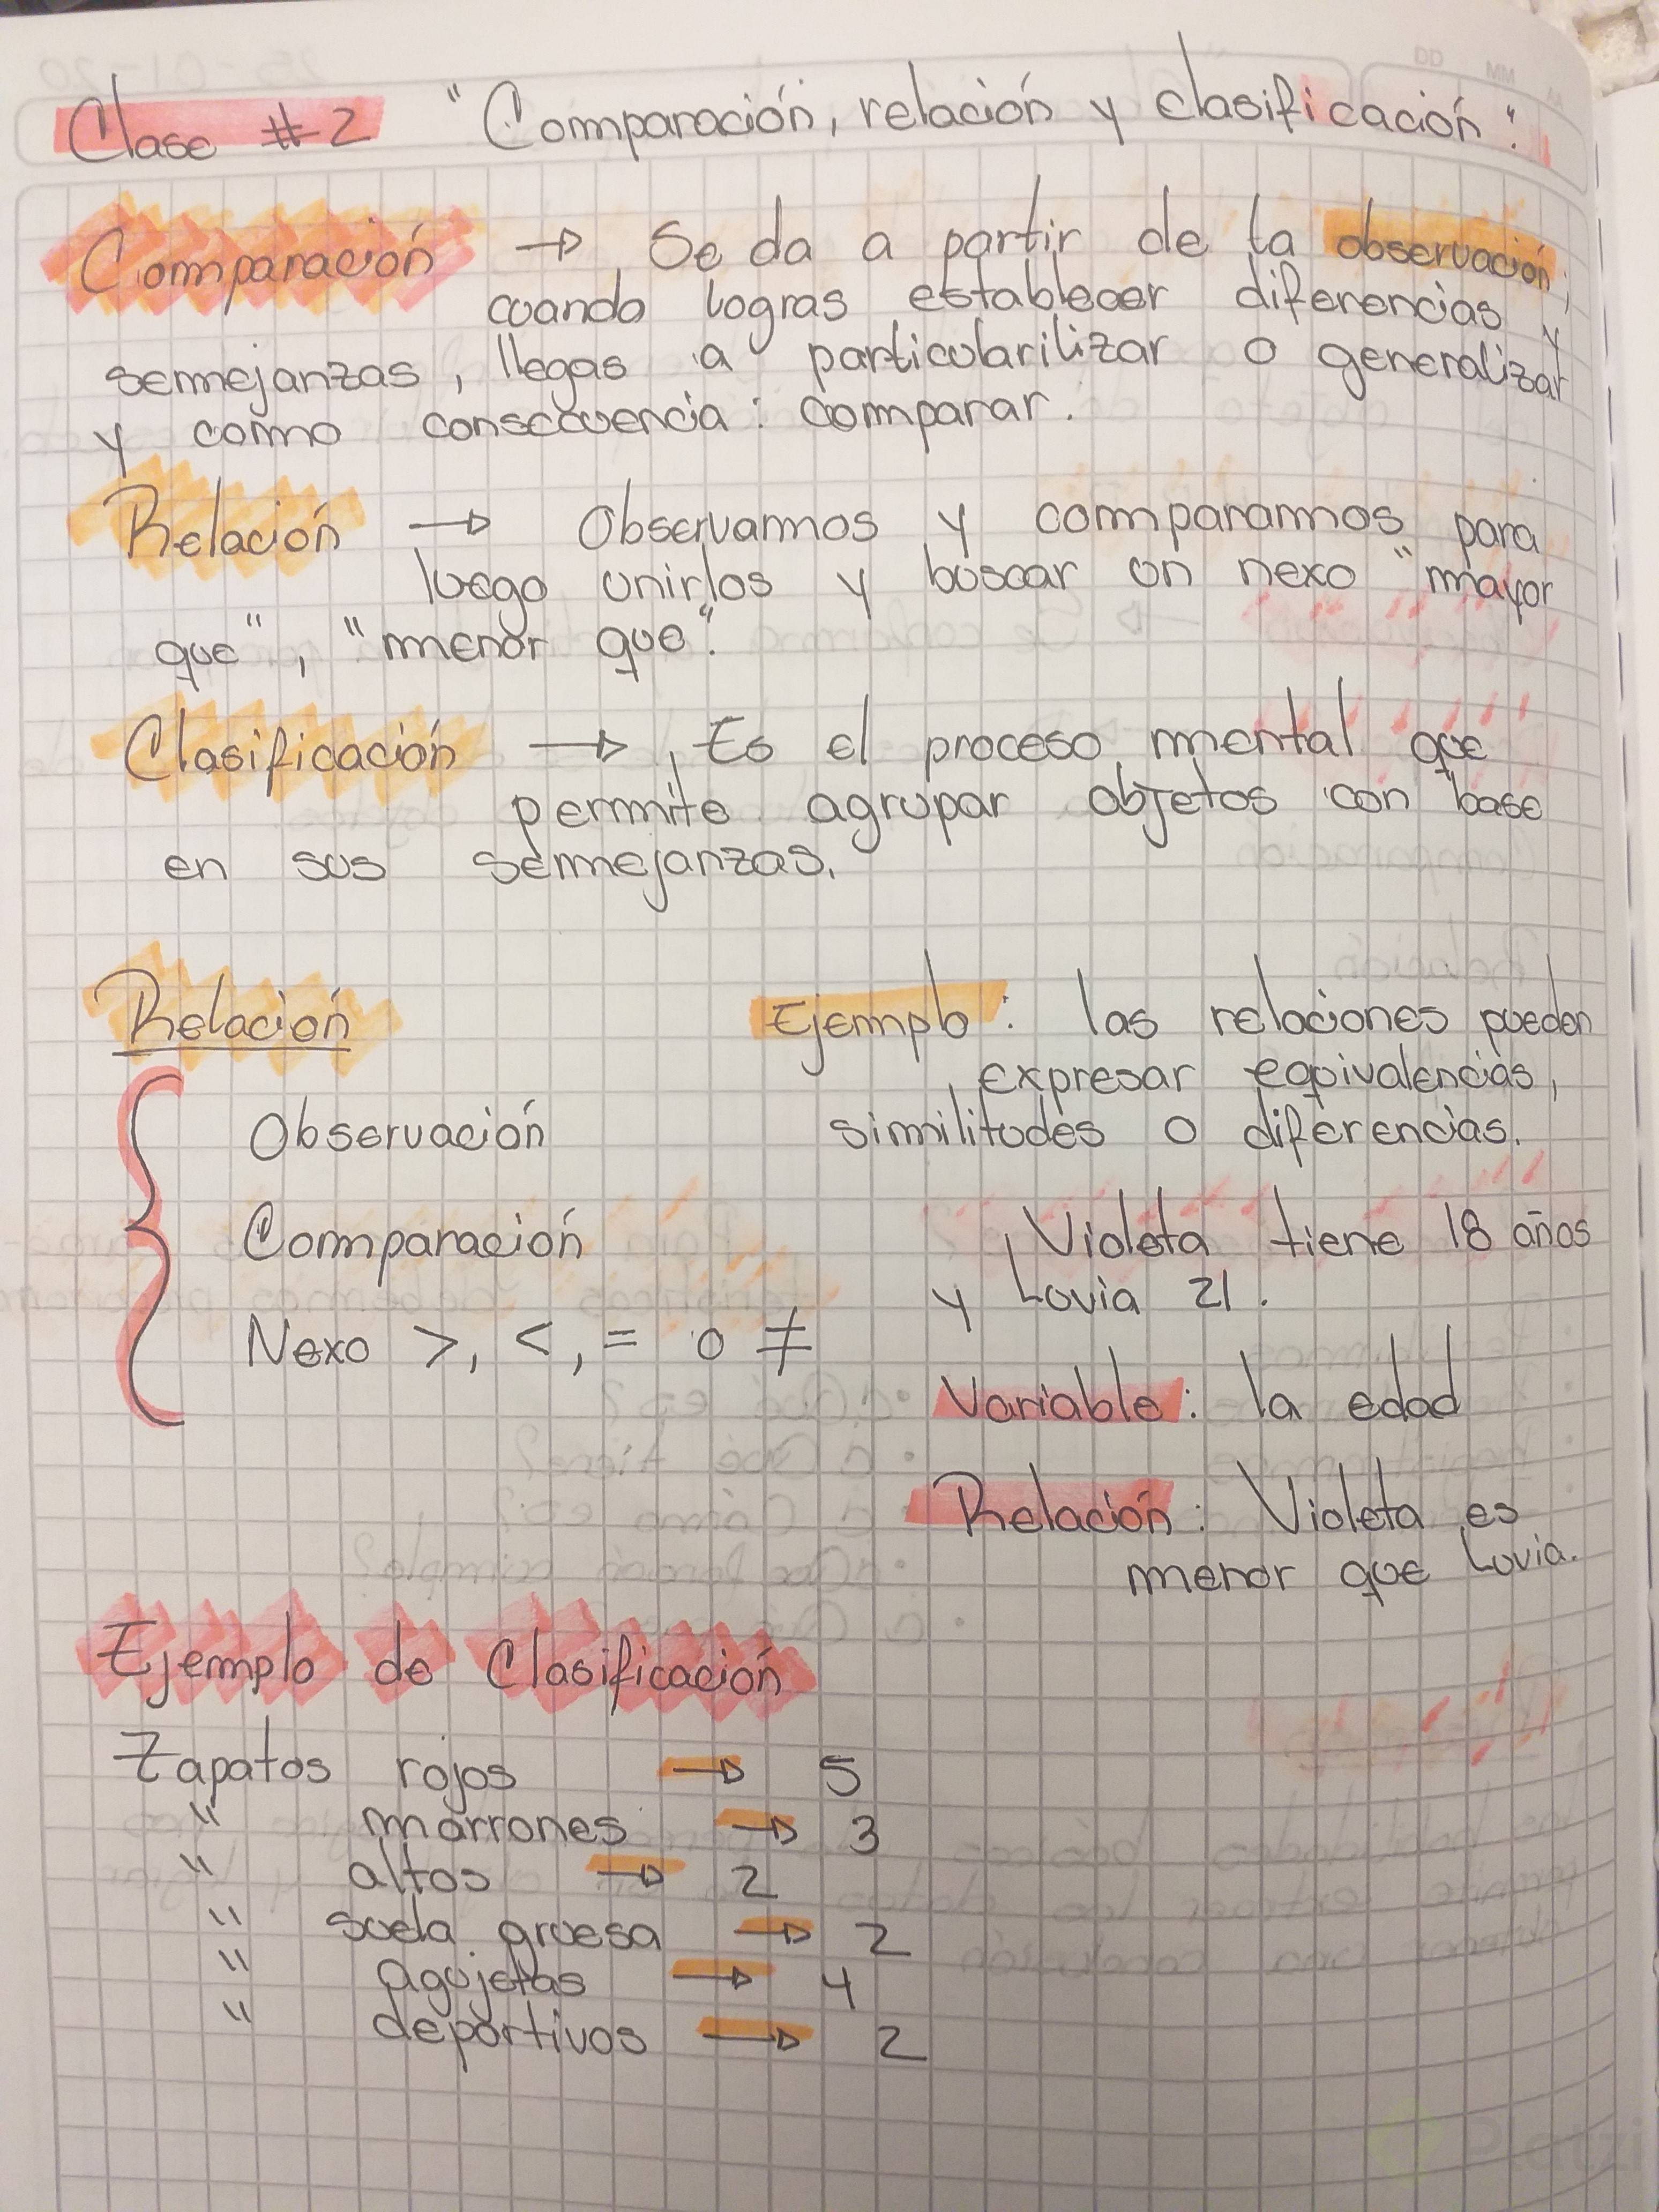 Clase #2 "Comparación, relación y clasificación".
Comparación → Se da a partir de la observación,
cuando logras establecer diferencias y
semejanzas, llegas a particularilizar o generalizar
y como consecuencia: comparar.
Relación → Observamos y comparamos para
luego unirlos y buscar un nexo "mayor
que", "menor que".
Clasificación → Es el proceso mental que
permite agrupar objetos con base
en sus semejanzas.
Relación
Observación
Comparación
Nexo >, <, = o ≠
Ejemplo: las relaciones pueden
expresar equivalencias,
similitudes o diferencias.
Violeta tiene 18 años
y Luvia 21.
Variable: la edad
Relación: Violeta es
menor que Luvia.
Ejemplo de Clasificación
Zapatos rojos → 5
" marrones → 3
" altos → 2
" suela gruesa → 2
" agujetas → 4
" deportivos → 2
DD MM
Platzi